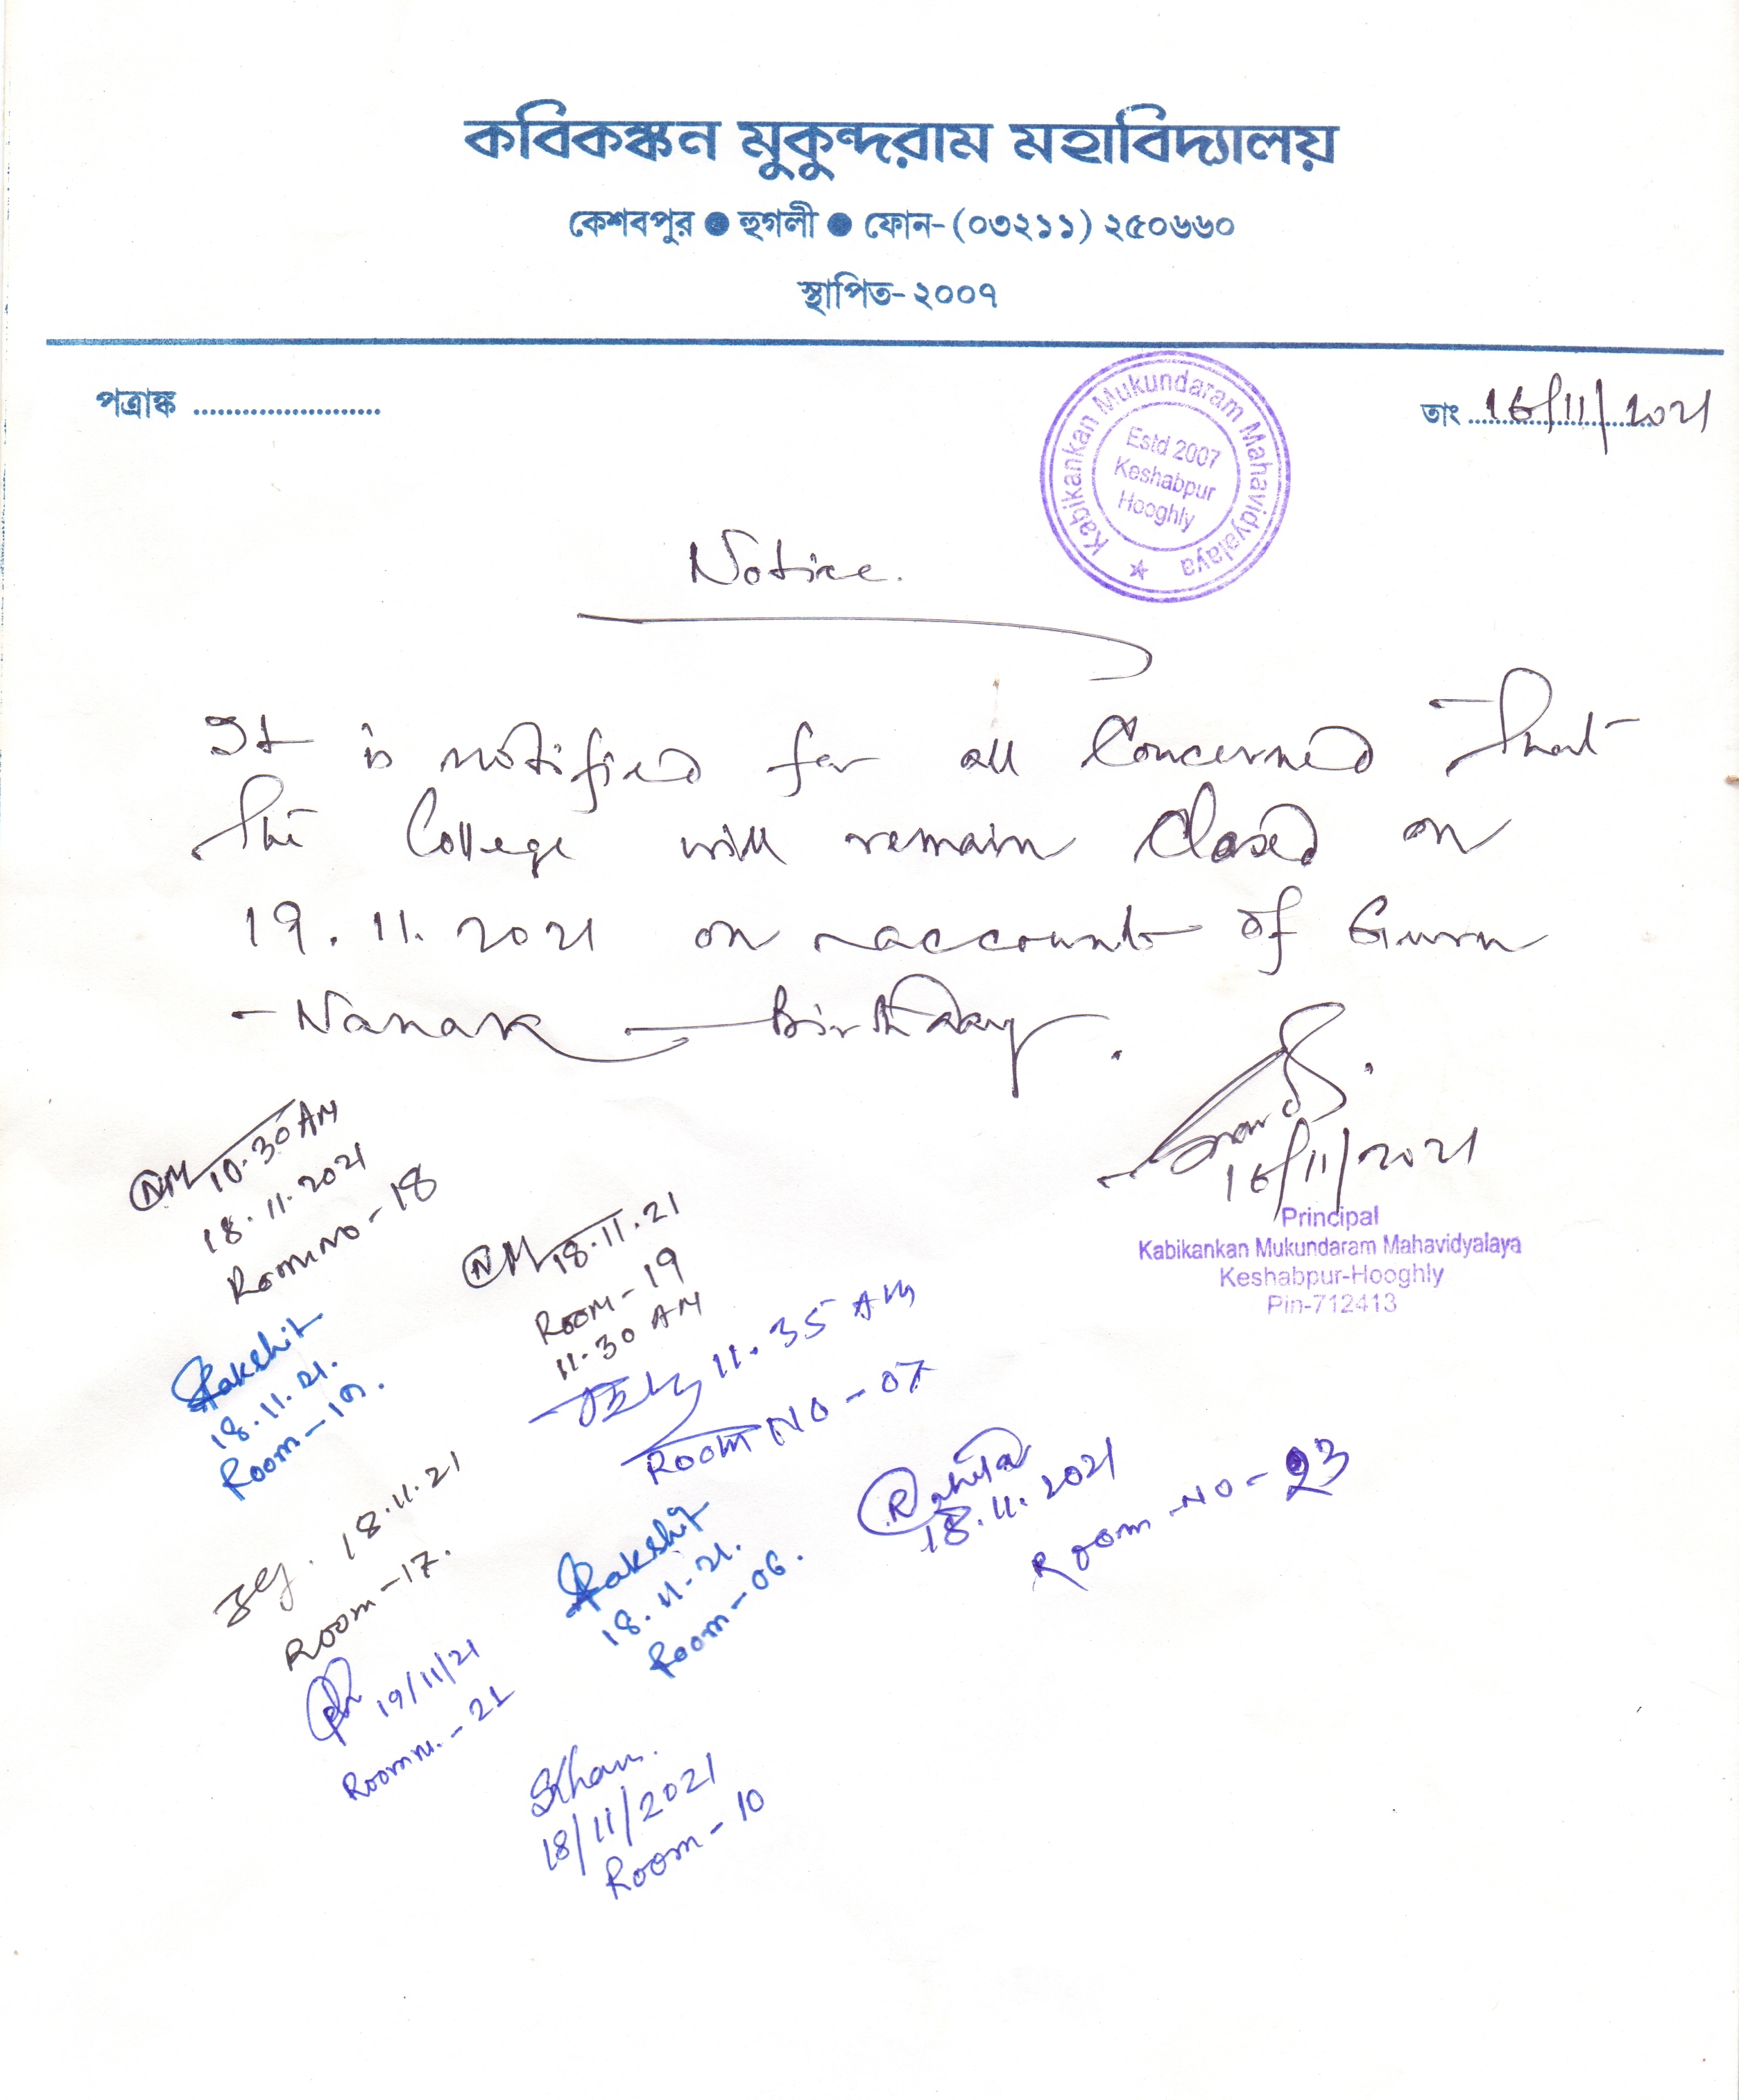 কবিকঙ্কন মুকুন্দরাম মহাবিদ্যালয়
কেশবপুর ● হুগলী ● ফোন-(০৩২১১) ২৫০৬৬০
স্থাপিত-২০০৭
পত্রাঙ্ক ........................
তাং 16/11/2021
Kabikankan Mukundaram Mahavidyalaya ★
Estd 2007
Keshabpur
Hooghly
Notice.
It is notified for all Concerned that
the College will remain Closed on
19.11.2021 on account of Guru
Nanak Birthday.
16/11/2021
Principal
Kabikankan Mukundaram Mahavidyalaya
Keshabpur-Hooghly
Pin-712413
NM 10.30 AM
18.11.2021
Room No-18
NM 18.11.21
Room-19
11.30 AM
11.35 AM
Room No-07
Rakshit
18.11.21.
18.11.21
Room-17.
Rakshit
18.11.21.
Room-06.
18.11.2021
Room No-23
19/11/21
Room - 21
SKhan.
18/11/2021
Room-10